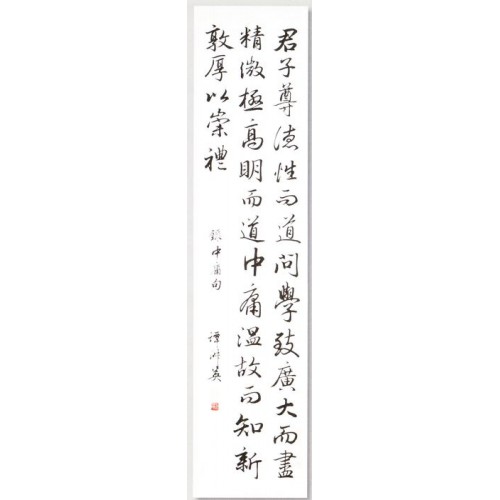 君子尊德性而道問學致廣大而盡
精微極高明而道中庸溫故而知新
敦厚以崇禮
錄中庸句